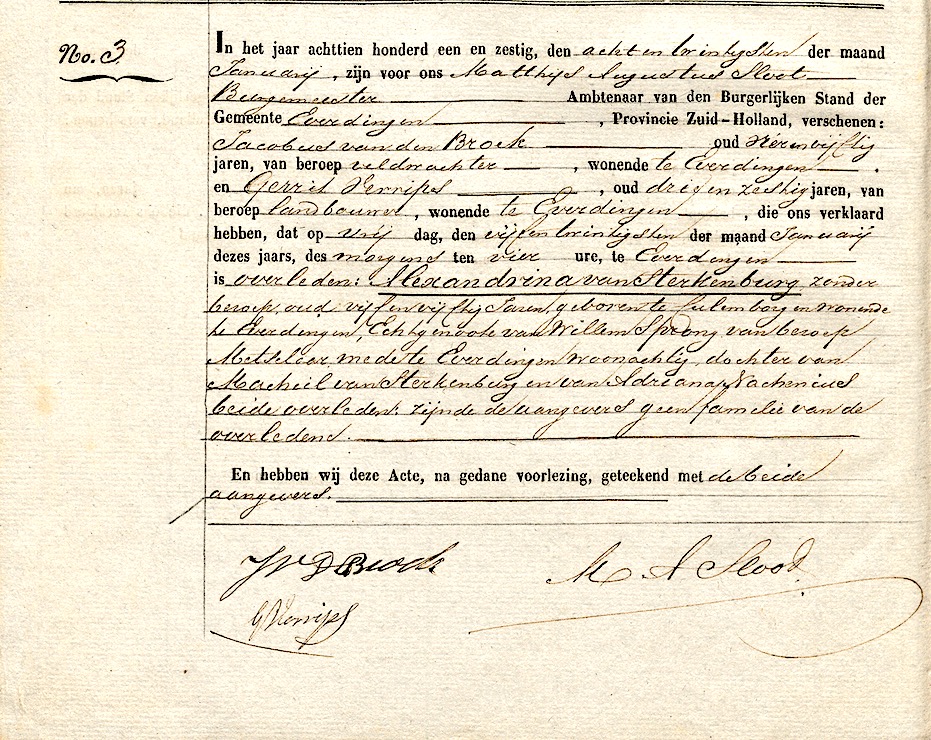 No. 3
In het jaar achttien honderd een en zestig, den acht en twintigsten der maand
Januarij, zijn voor ons Matthijs Augustus Sloot
Burgemeester Ambtenaar van den Burgerlijken Stand der
Gemeente Everdingen, Provincie Zuid-Holland, verschenen:
Jacobus van den Broek oud vierenvijftig
jaren, van beroep veldwachter, wonende te Everdingen.
en Gerrit Verrips, oud drie en zestig jaren, van
beroep landbouwer, wonende te Everdingen, die ons verklaard
hebben, dat op vrij dag, den vijf en twintigsten der maand Januarij
dezes jaars, des morgens ten vier ure, te Everdingen
is overleden: Alexandrina van Sterkenburg zonder
beroep, oud vijf en vijftig Jaren, geboren te Culemborg en wonende
te Everdingen, Echtgenoote van Willem Sprong van beroep
Metselaar mede te Everdingen woonachtig, dochter van
Macheil van Sterkenburg en van Adriana Nachenius
beide overleden: zijnde de aangevers geen familie van de
overledene.
En hebben wij deze Acte, na gedane voorlezing, geteekend met de beide
aangevers.
JVDBroek M A Sloot
GVerrips